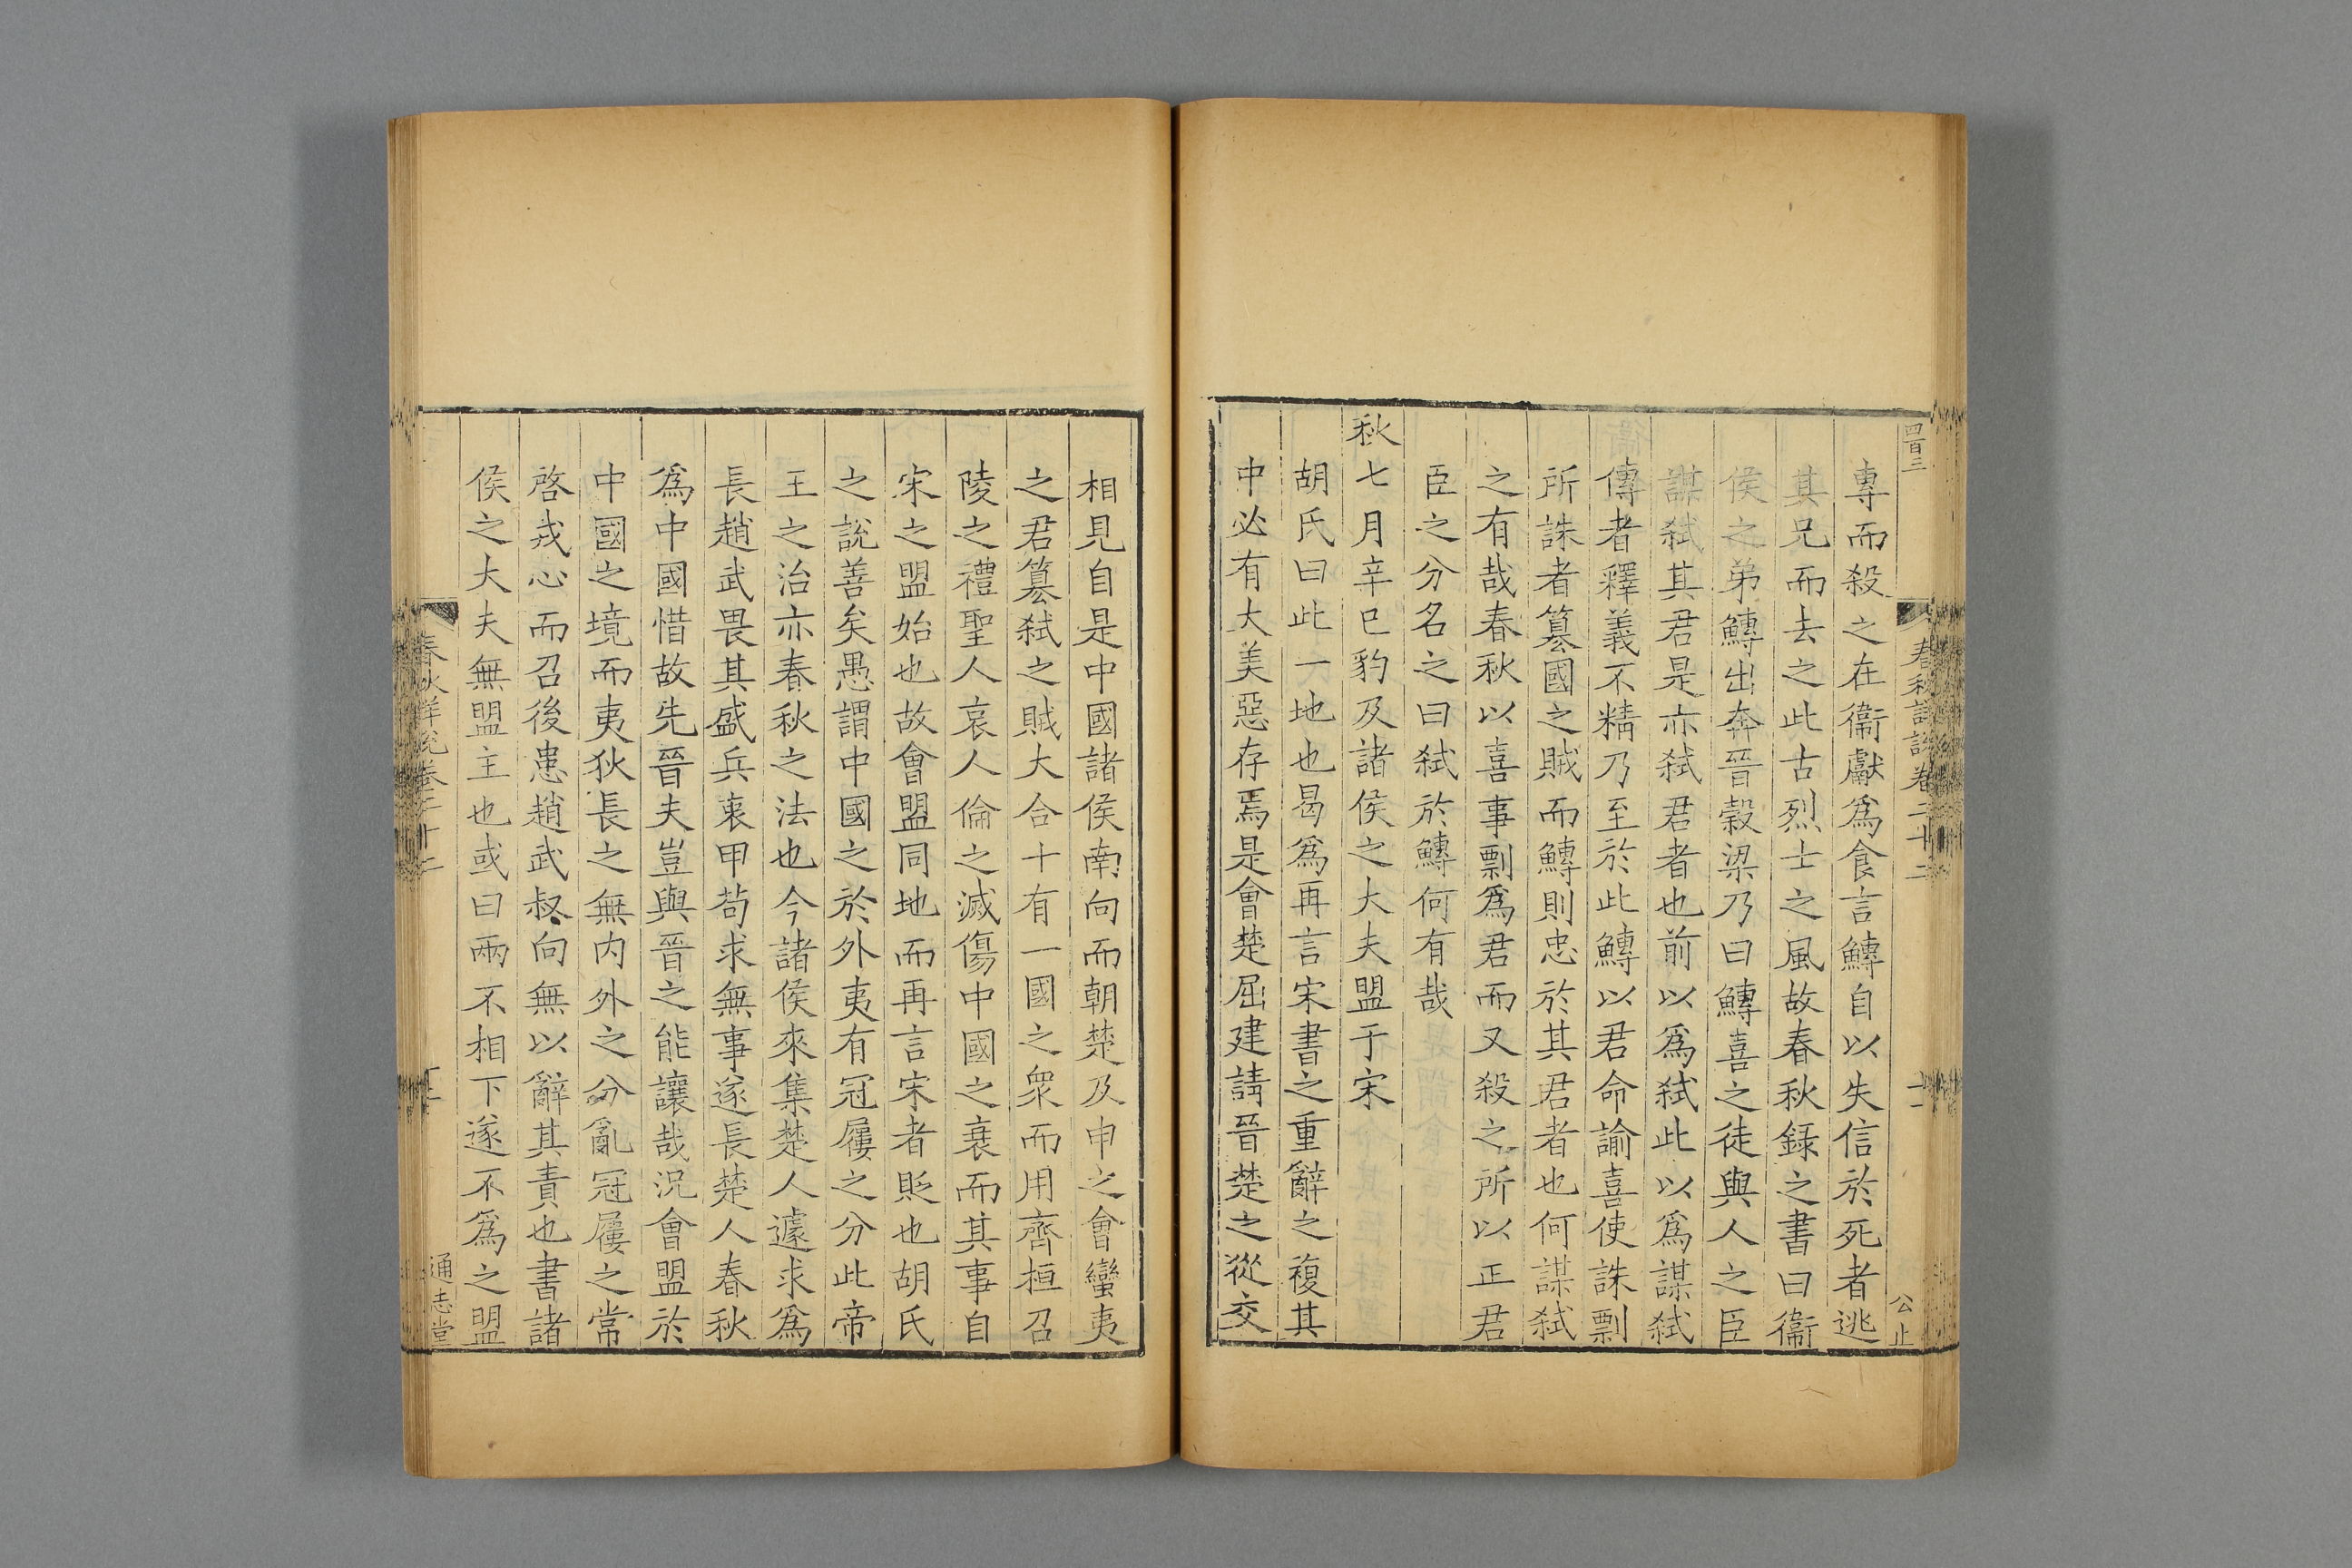 四百三
春秋詳說卷二十二
十一
公止
專而殺之在衞獻爲食言鱄自以失信於死者逃
其兄而去之此古烈士之風故春秋録之書曰衞
侯之弟鱄出奔晉榖梁乃曰鱄喜之徒與人之臣
謀弑其君是亦弑君者也前以爲弑此以爲謀弑
傳者釋義不精乃至於此鱄以君命諭喜使誅剽
所誅者簒國之賊而鱄則忠於其君者也何謀弑
之有哉春秋以喜事剽爲君而又殺之所以正君
臣之分名之曰弑於鱄何有哉
秋七月辛巳豹及諸侯之大夫盟于宋
胡氏曰此一地也曷爲再言宋書之重辭之複其
中必有大美惡存焉是會楚屈建請晉楚之從交
相見自是中國諸侯南向而朝楚及申之會蠻夷
之君簒弑之賊大合十有一國之衆而用齊桓召
陵之禮聖人哀人倫之滅傷中國之衰而其事自
宋之盟始也故會盟同地而再言宋者貶也胡氏
之說善矣愚謂中國之於外夷有冠屨之分此帝
王之治亦春秋之法也今諸侯來集楚人遽求爲
長趙武畏其盛兵衷甲苟求無事遂長楚人春秋
爲中國惜故先晉夫豈與晉之能讓哉況會盟於
中國之境而夷狄長之無内外之分亂冠屨之常
啓戎心而召後患趙武叔向無以辭其責也書諸
侯之大夫無盟主也或曰兩不相下遂不爲之盟
春秋詳說卷二十二
通志堂